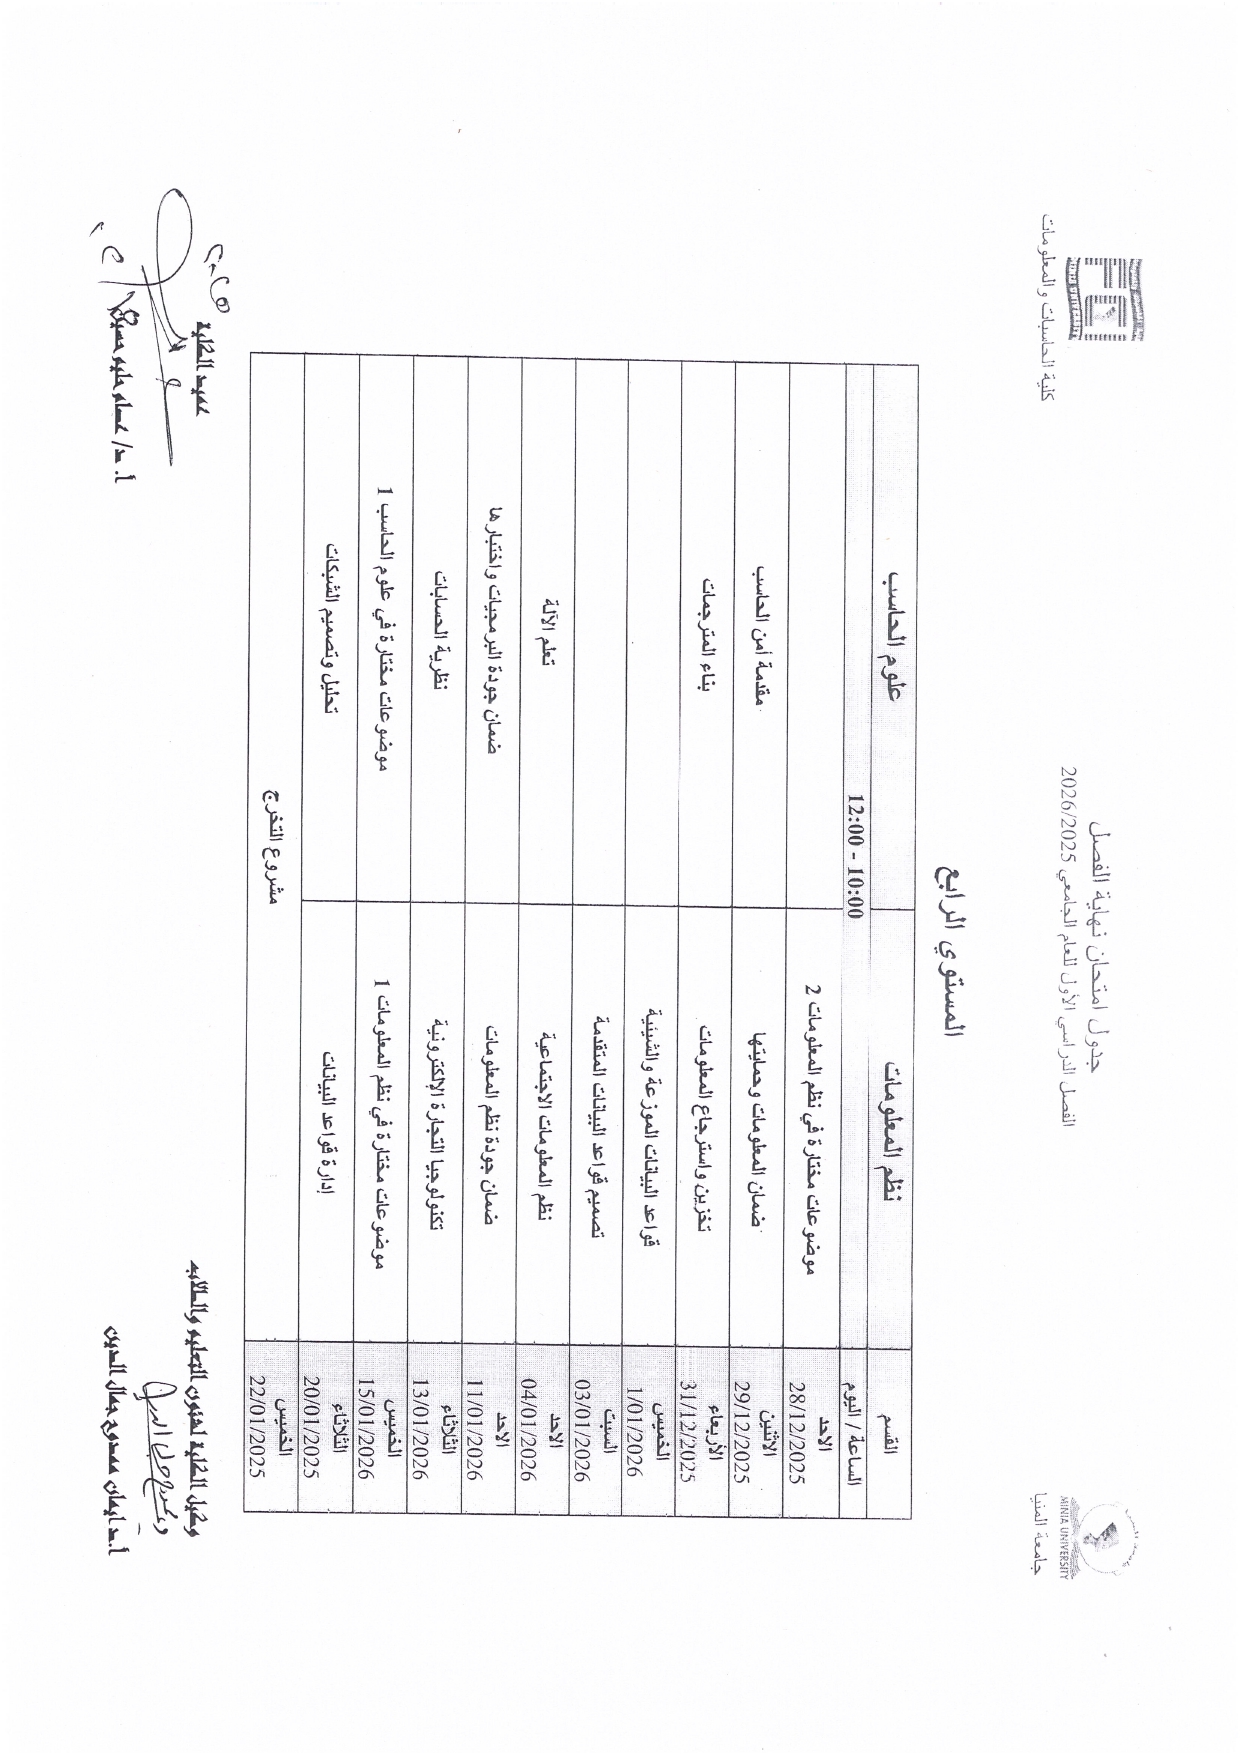 جامعة المنيا
MINIA UNIVERSITY
جدول امتحان نهاية الفصل
الفصل الدراسي الأول للعام الجامعي 2026/2025
كلية الحاسبات والمعلومات
المستوي الرابع
القسم نظم المعلومات علوم الحاسب
الساعة / اليوم 10:00 - 12:00
الاحد 28/12/2025 موضوعات مختارة في نظم المعلومات 2
الاثنين 29/12/2025 ضمان المعلومات وحمايتها مقدمة أمن الحاسب
الأربعاء 31/12/2025 تخزين واسترجاع المعلومات بناء المترجمات
الخميس 1/01/2026 قواعد البيانات الموزعة والشيئية
السبت 03/01/2026 تصميم قواعد البيانات المتقدمة
الاحد 04/01/2026 نظم المعلومات الاجتماعية تعلم الآلة
الاحد 11/01/2026 ضمان جودة نظم المعلومات ضمان جودة البرمجيات واختبارها
الثلاثاء 13/01/2026 تكنولوجيا التجارة الإلكترونية نظرية الحسابات
الخميس 15/01/2026 موضوعات مختارة في نظم المعلومات 1 موضوعات مختارة في علوم الحاسب 1
الثلاثاء 20/01/2025 إدارة قواعد البيانات تحليل وتصميم الشبكات
الخميس 22/01/2025 مشروع التخرج
وكيل الكلية لشئون التعليم والطلاب
أ.د/ إيمان ممدوح جمال الدين
عميد الكلية
أ.د/ عصام حليم حسين